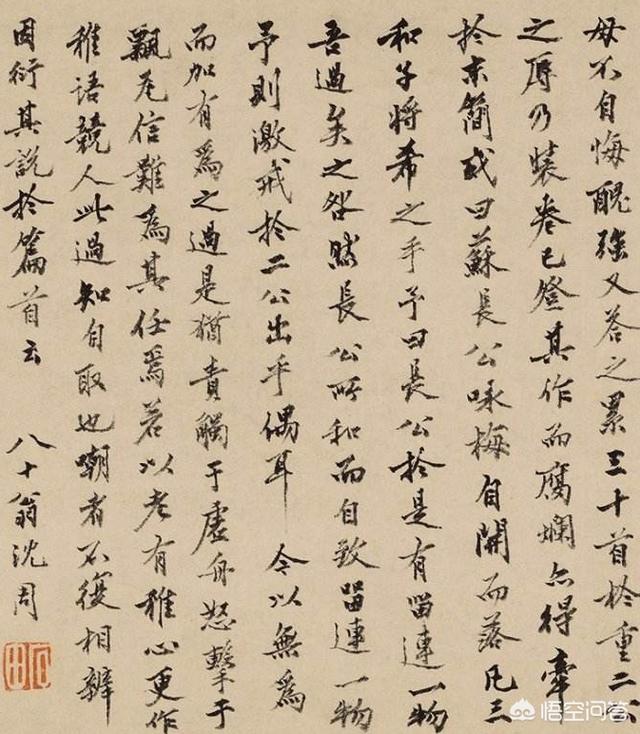 毋不自悔醜強又答之累三十首於重二公
之辱乃裝卷已登其作而腐爛亦得牽
於末簡或曰蘇長公咏梅自開而落凡三
和子將希之乎予曰長公於是有留連一物
吾過矣之咎然長公所和而自致留連一物
予則激戒於二公出乎偶耳 今以無為
而加有為之過是猶責觸于虛舟怒擊于
飄瓦信難為其任焉若以老有稚心更作
稚語競人此過知自取也嘲者不復相辨
因衍其說於篇首云 八十翁沈周
悟空问答